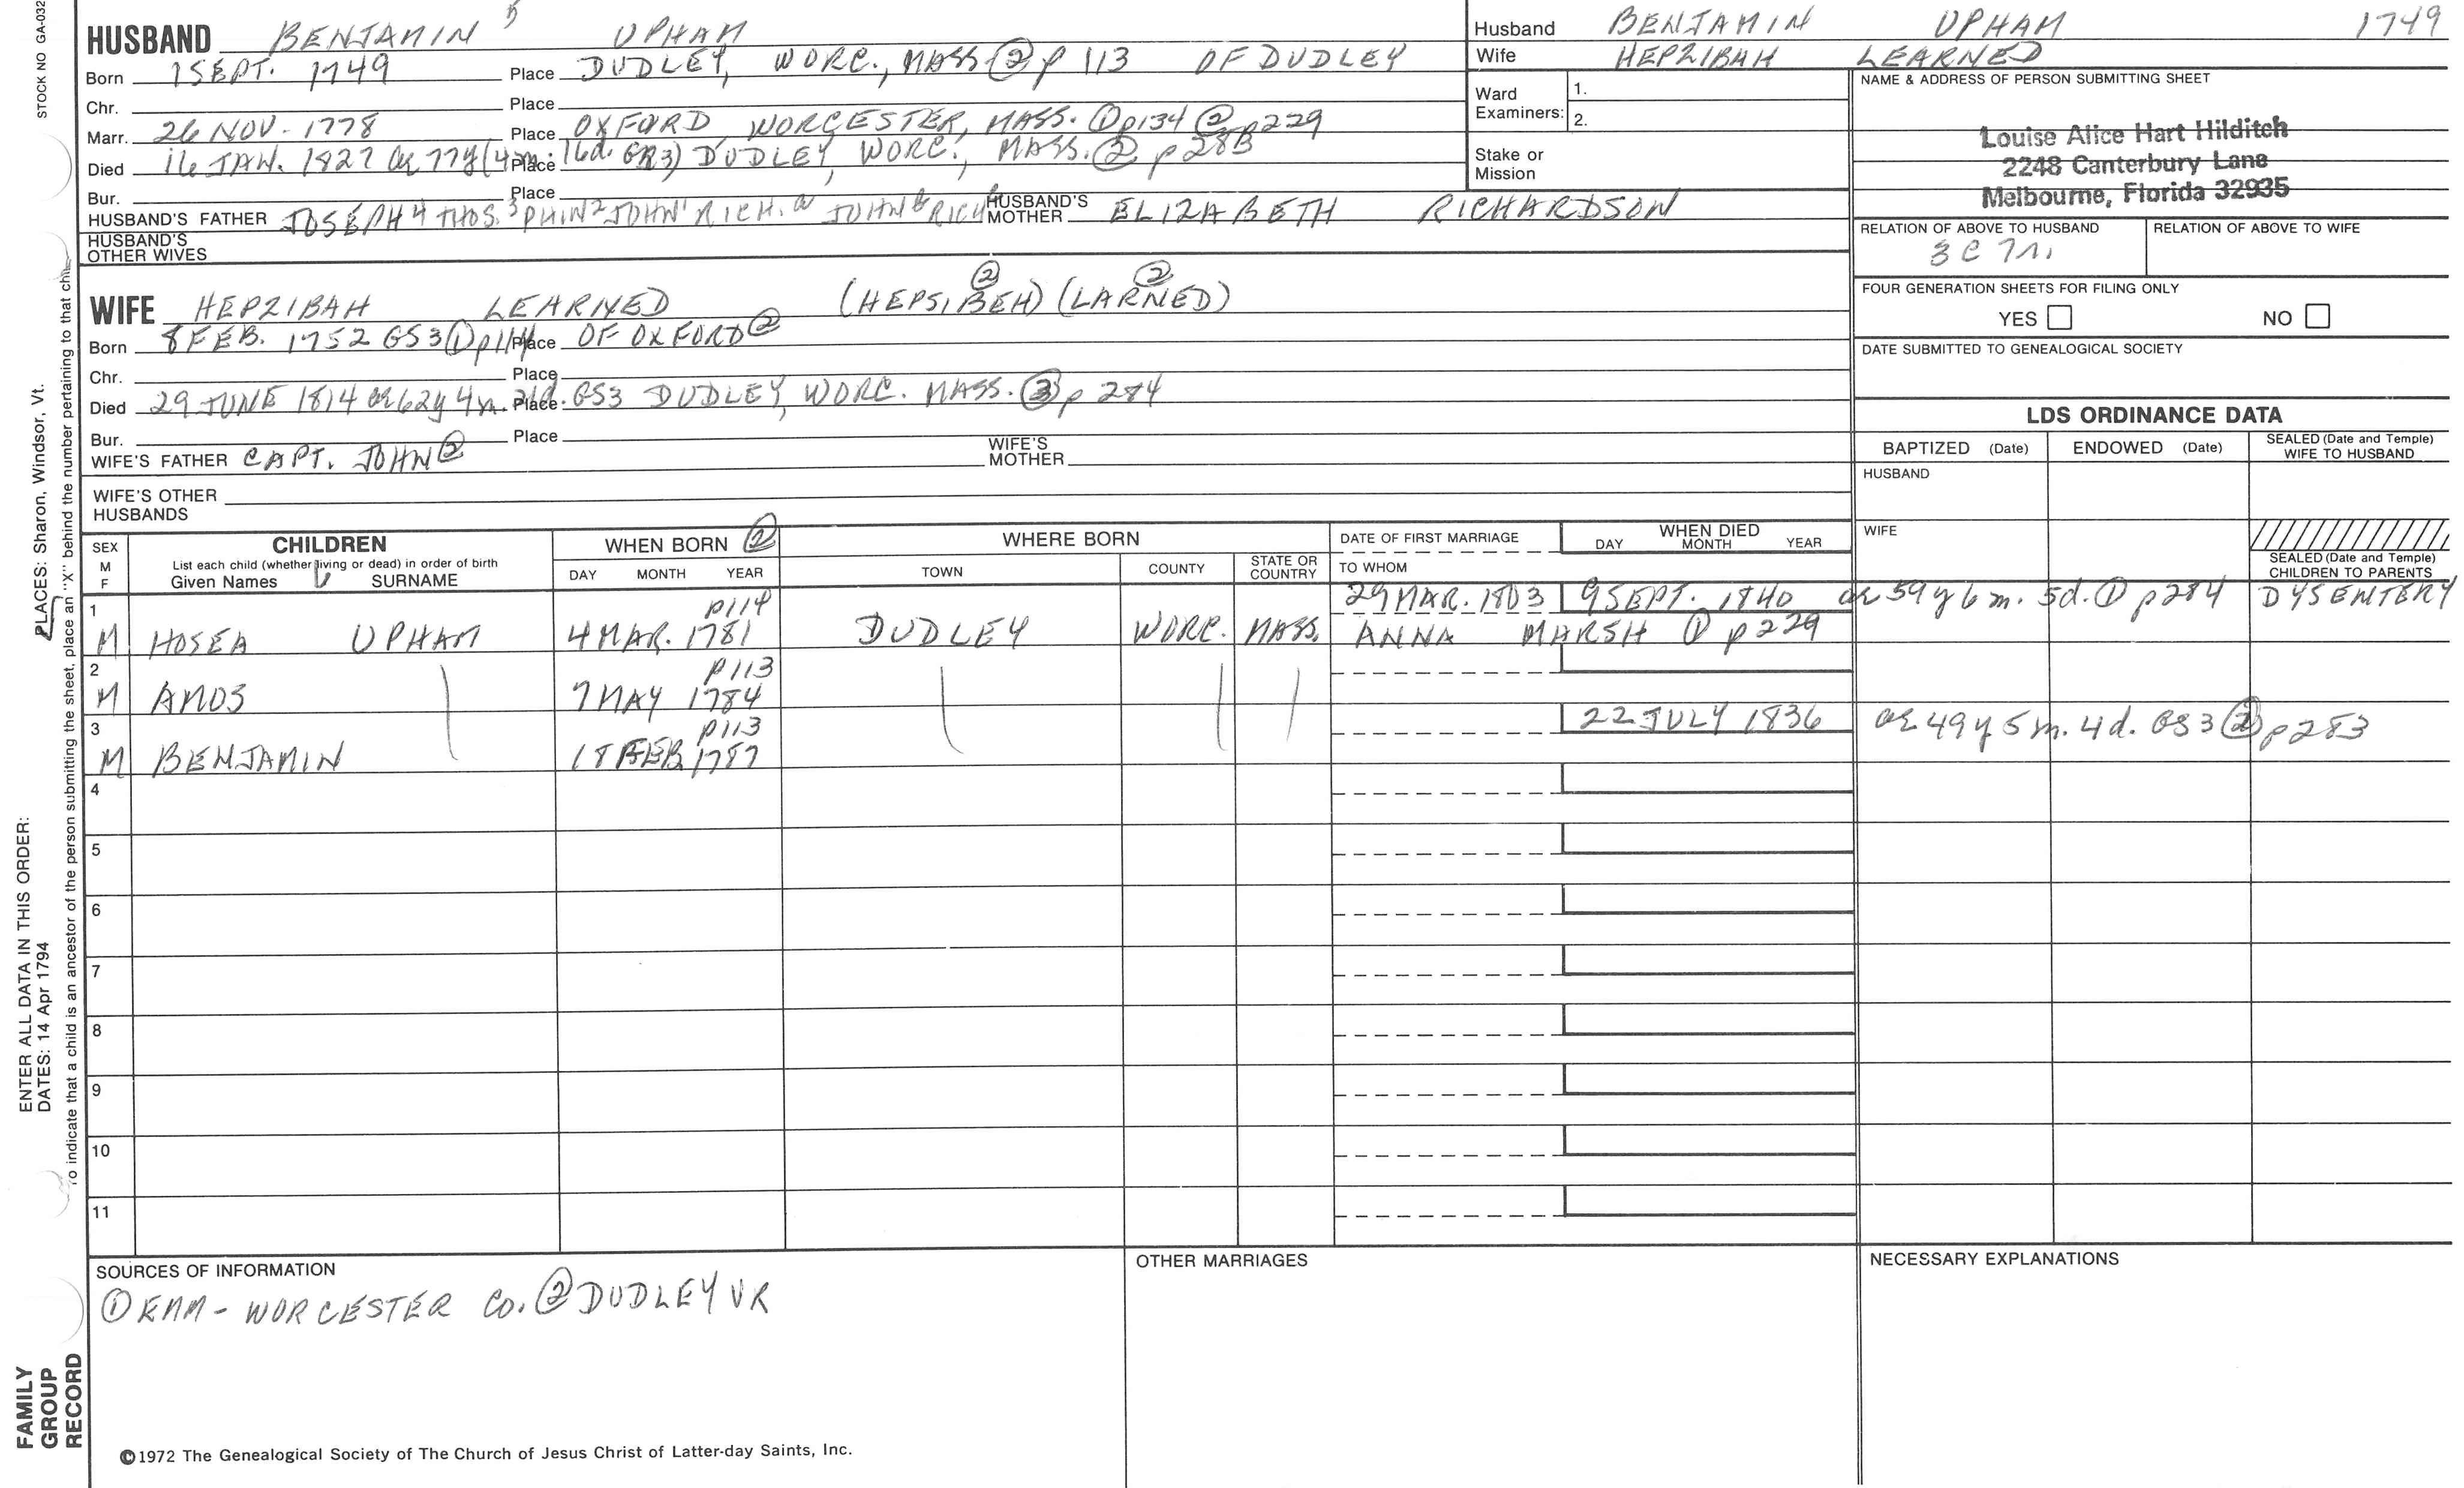 STOCK NO GA-032
HUSBAND BENJAMIN 5 UPHAM
Born 1 SEPT. 1749 Place DUDLEY, WORC., MASS ② p 113 OF DUDLEY
Chr. Place
Marr. 26 NOV. 1778 Place OXFORD, WORCESTER, MASS. ① p134 ② p229
Died 16 JAN. 1827 ae 77y (4m. 16d. GR3) Place DUDLEY, WORC., MASS. ② p 283
Bur. Place
HUSBAND'S FATHER JOSEPH 4 THOS. 3 PHIN 2 JOHN 1 RICH. JOHN RICH HUSBAND'S MOTHER ELIZABETH RICHARDSON
HUSBAND'S OTHER WIVES
Husband BENJAMIN UPHAM 1749
Wife HEPZIBAH LEARNED
Ward Examiners: 1. 2.
Stake or Mission
NAME & ADDRESS OF PERSON SUBMITTING SHEET
Louise Alice Hart Hilditch
2248 Canterbury Lane
Melbourne, Florida 32935
RELATION OF ABOVE TO HUSBAND RELATION OF ABOVE TO WIFE
3C 7r.
FOUR GENERATION SHEETS FOR FILING ONLY
YES NO
DATE SUBMITTED TO GENEALOGICAL SOCIETY
WIFE HEPZIBAH LEARNED (HEPSIBEH) ② (LARNED) ②
Born 8 FEB. 1752 GS3 ① p114 Place OF OXFORD ②
Chr. Place
Died 29 JUNE 1814 ae 62y 4m. 21d. GS3 Place DUDLEY, WORC. MASS. ② p 284
Bur. Place
WIFE'S FATHER CAPT. JOHN ② WIFE'S MOTHER
WIFE'S OTHER HUSBANDS
LDS ORDINANCE DATA
BAPTIZED (Date) ENDOWED (Date) SEALED (Date and Temple) WIFE TO HUSBAND
HUSBAND
WIFE
SEALED (Date and Temple) CHILDREN TO PARENTS
SEX M F
CHILDREN
List each child (whether living or dead) in order of birth
Given Names SURNAME
WHEN BORN ②
DAY MONTH YEAR
WHERE BORN
TOWN COUNTY STATE OR COUNTRY
DATE OF FIRST MARRIAGE
TO WHOM
WHEN DIED
DAY MONTH YEAR
1 p114 29 MAR. 1803 9 SEPT. 1840 ae 59 y 6 m. 5d. ① p 284 DYSENTERY
M HOSEA UPHAM 4 MAR. 1781 DUDLEY WORC. MASS. ANNA MARSH ① p 229
2 p113
M AMOS 7 MAY 1784
3 p113 22 JULY 1836 ae 49 y 5 m. 4 d. GS 3 ② p 283
M BENJAMIN 18 FEB. 1787
4
5
6
7
8
9
10
11
SOURCES OF INFORMATION
① EMM - WORCESTER CO. ② DUDLEY VR
OTHER MARRIAGES
NECESSARY EXPLANATIONS
©1972 The Genealogical Society of The Church of Jesus Christ of Latter-day Saints, Inc.
FAMILY GROUP RECORD
ENTER ALL DATA IN THIS ORDER:
DATES: 14 Apr 1794
PLACES: Sharon, Windsor, Vt.
To indicate that a child is an ancestor of the person submitting the sheet, place an "X" behind the number pertaining to that